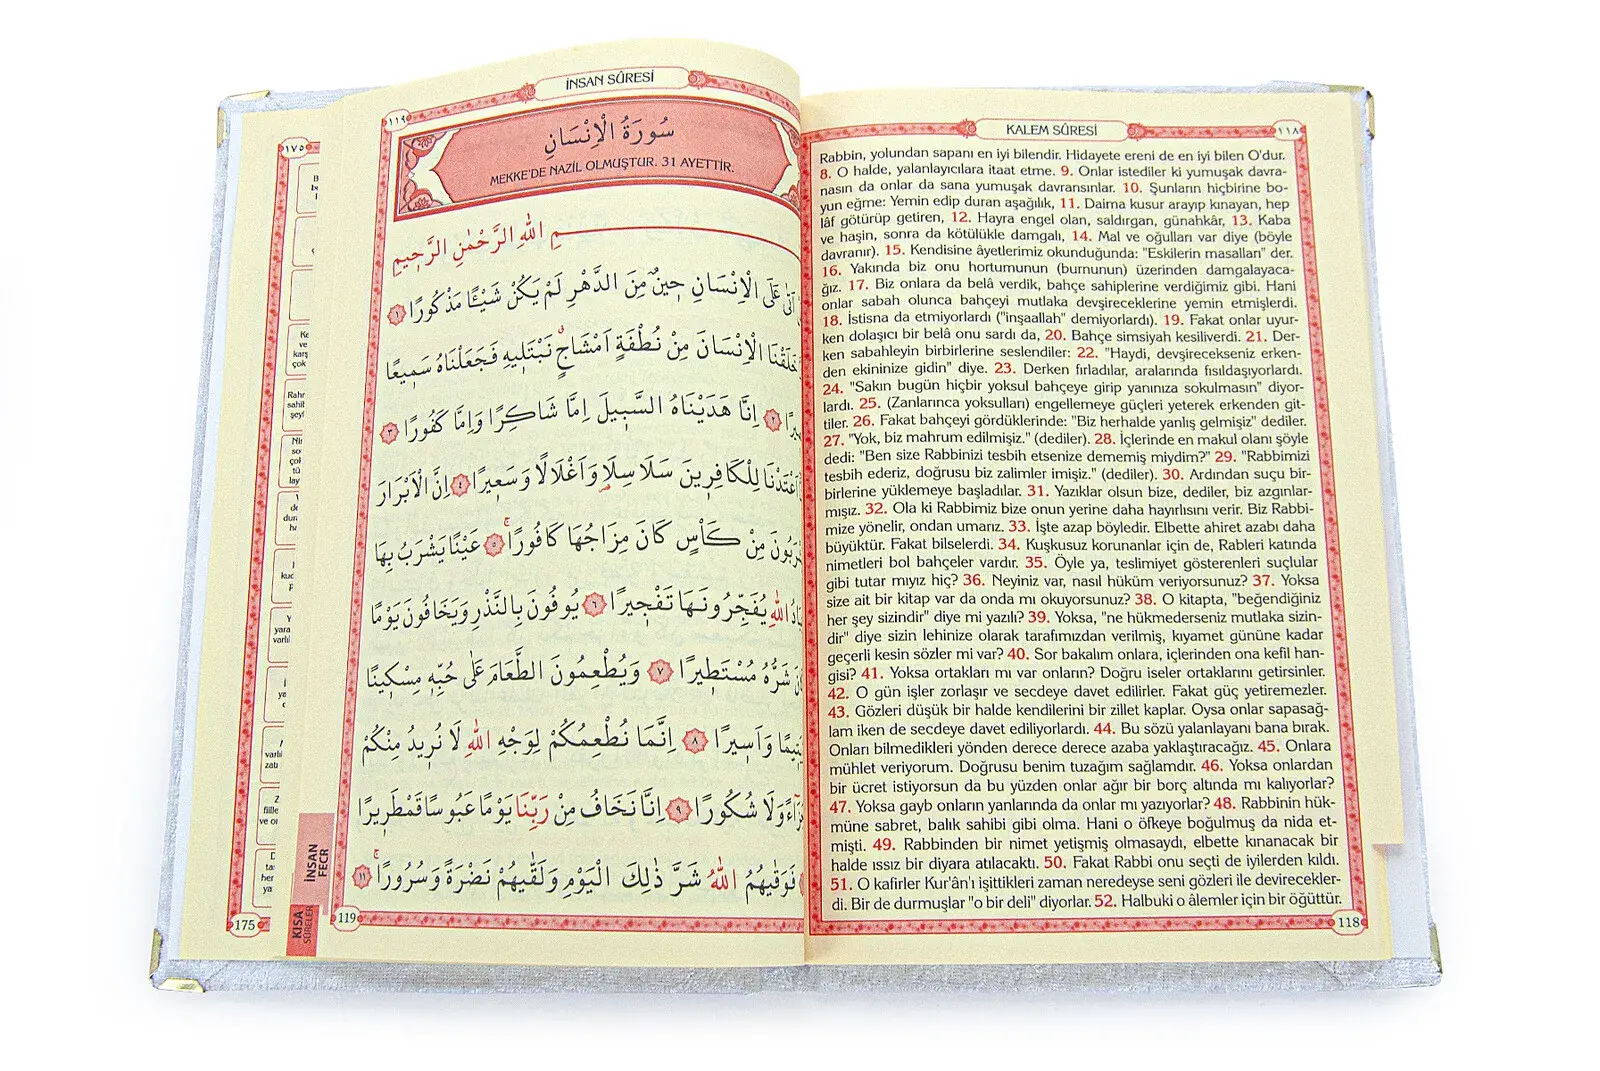 KALEM SÛRESİ
١١٨
Rabbin, yolundan sapanı en iyi bilendir. Hidayete ereni de en iyi bilen O'dur.
8. O halde, yalanlayıcılara itaat etme. 9. Onlar istediler ki yumuşak davra-
nasın da onlar da sana yumuşak davransınlar. 10. Şunların hiçbirine bo-
yun eğme: Yemin edip duran aşağılık, 11. Daima kusur arayıp kınayan, hep
lâf götürüp getiren, 12. Hayra engel olan, saldırgan, günahkâr, 13. Kaba
ve haşin, sonra da kötülükle damgalı, 14. Mal ve oğulları var diye (böyle
davranır). 15. Kendisine âyetlerimiz okunduğunda: "Eskilerin masalları" der.
16. Yakında biz onu hortumunun (burnunun) üzerinden damgalayaca-
ğız. 17. Biz onlara da belâ verdik, bahçe sahiplerine verdiğimiz gibi. Hani
onlar sabah olunca bahçeyi mutlaka devşireceklerine yemin etmişlerdi.
18. İstisna da etmiyorlardı ("inşaallah" demiyorlardı). 19. Fakat onlar uyur-
ken dolaşıcı bir belâ onu sardı da, 20. Bahçe simsiyah kesiliverdi. 21. Der-
ken sabahleyin birbirlerine seslendiler: 22. "Haydi, devşirecekseniz erken-
den ekininize gidin" diye. 23. Derken fırladılar, aralarında fısıldaşıyorlardı.
24. "Sakın bugün hiçbir yoksul bahçeye girip yanınıza sokulmasın" diyor-
lardı. 25. (Zanlarınca yoksulları) engellemeye güçleri yeterek erkenden git-
tiler. 26. Fakat bahçeyi gördüklerinde: "Biz herhalde yanlış gelmişiz" dediler.
27. "Yok, biz mahrum edilmişiz." (dediler). 28. İçlerinde en makul olanı şöyle
dedi: "Ben size Rabbinizi tesbih etsenize dememiş miydim?" 29. "Rabbimizi
tesbih ederiz, doğrusu biz zalimler imişiz." (dediler). 30. Ardından suçu bir-
birlerine yüklemeye başladılar. 31. Yazıklar olsun bize, dediler, biz azgınlar-
mışız. 32. Ola ki Rabbimiz bize onun yerine daha hayırlısını verir. Biz Rabbi-
mize yönelir, ondan umarız. 33. İşte azap böyledir. Elbette ahiret azabı daha
büyüktür. Fakat bilselerdi. 34. Kuşkusuz korunanlar için de, Rableri katında
nimetleri bol bahçeler vardır. 35. Öyle ya, teslimiyet gösterenleri suçlular
gibi tutar mıyız hiç? 36. Neyiniz var, nasıl hüküm veriyorsunuz? 37. Yoksa
size ait bir kitap var da onda mı okuyorsunuz? 38. O kitapta, "beğendiğiniz
her şey sizindir" diye mi yazılı? 39. Yoksa, "ne hükmederseniz mutlaka sizin-
dir" diye sizin lehinize olarak tarafımızdan verilmiş, kıyamet gününe kadar
geçerli kesin sözler mi var? 40. Sor bakalım onlara, içlerinden ona kefil han-
gisi? 41. Yoksa ortakları mı var onların? Doğru iseler ortaklarını getirsinler.
42. O gün işler zorlaşır ve secdeye davet edilirler. Fakat güç yetiremezler.
43. Gözleri düşük bir halde kendilerini bir zillet kaplar. Oysa onlar sapasağ-
lam iken de secdeye davet ediliyorlardı. 44. Bu sözü yalanlayanı bana bırak.
Onları bilmedikleri yönden derece derece azaba yaklaştıracağız. 45. Onlara
mühlet veriyorum. Doğrusu benim tuzağım sağlamdır. 46. Yoksa onlardan
bir ücret istiyorsun da bu yüzden onlar ağır bir borç altında mı kalıyorlar?
47. Yoksa gayb onların yanlarında da onlar mı yazıyorlar? 48. Rabbinin hük-
müne sabret, balık sahibi gibi olma. Hani o öfkeye boğulmuş da nida et-
mişti. 49. Rabbinden bir nimet yetişmiş olmasaydı, elbette kınanacak bir
halde ıssız bir diyara atılacaktı. 50. Fakat Rabbi onu seçti de iyilerden kıldı.
51. O kafirler Kur'ân'ı işittikleri zaman neredeyse seni gözleri ile devirecekler-
di. Bir de durmuşlar "o bir deli" diyorlar. 52. Halbuki o âlemler için bir öğüttür.
118
İNSAN SÛRESİ
١١٩
سُورَةُ الْاِنْسَانِ
MEKKE'DE NAZİL OLMUŞTUR. 31 AYETTİR.
اللّٰهِ الرَّحْمٰنِ الرَّحٖيمِ
اَتٰى عَلَى الْاِنْسَانِ حٖينٌ مِنَ الدَّهْرِ لَمْ يَكُنْ شَيْـًٔا مَذْكُورًا ﴿١﴾
خَلَقْنَا الْاِنْسَانَ مِنْ نُطْفَةٍ اَمْشَاجٍ نَبْتَلٖيهِ فَجَعَلْنَاهُ سَمٖيعًا
﴿٢﴾ اِنَّا هَدَيْنَاهُ السَّبٖيلَ اِمَّا شَاكِرًا وَاِمَّا كَفُورًا ﴿٣﴾
اَعْتَدْنَا لِلْكَافِرٖينَ سَلَاسِلَا۬ وَاَغْلَالًا وَسَعٖيرًا ﴿٤﴾ اِنَّ الْاَبْرَارَ
مِنْ كَأْسٍ كَانَ مِزَاجُهَا كَافُورًاۚ ﴿٥﴾ عَيْنًا يَشْرَبُ بِهَا
اللّٰهِ يُفَجِّرُونَهَا تَفْجٖيرًا ﴿٦﴾ يُوفُونَ بِالنَّذْرِ وَيَخَافُونَ يَوْمًا
شَرُّهُ مُسْتَطٖيرًا ﴿٧﴾ وَيُطْعِمُونَ الطَّعَامَ عَلٰى حُبِّهٖ مِسْكٖينًا
وَاَسٖيرًا ﴿٨﴾ اِنَّمَا نُطْعِمُكُمْ لِوَجْهِ اللّٰهِ لَا نُرٖيدُ مِنْكُمْ
وَلَا شُكُورًا ﴿٩﴾ اِنَّا نَخَافُ مِنْ رَبِّنَا يَوْمًا عَبُوسًا قَمْطَرٖيرًا
فَوَقٰيهُمُ اللّٰهُ شَرَّ ذٰلِكَ الْيَوْمِ وَلَقّٰيهُمْ نَضْرَةً وَسُرُورًاۚ ﴿١١﴾
119
İNSAN
FECR
KISA
SÛRELER
١٧٥
175